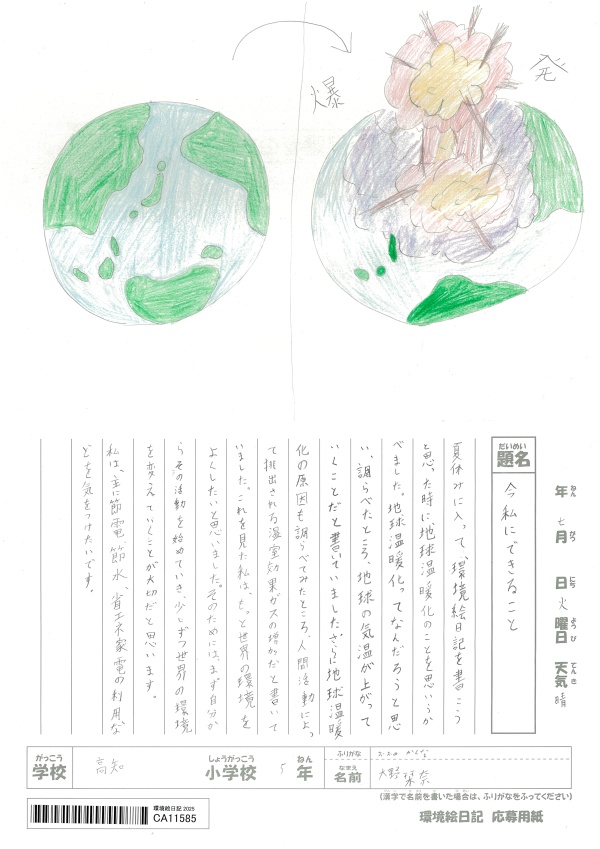 爆発
年 七月 日 火曜日 天気 晴
ねん がつ にち ようび てんき
だいめい
題名 今私にできること
夏休みに入って、環境絵日記を書こう
と思った時に、地球温暖化のことを思いうか
べました。地球温暖化ってなんだろうと思
い、調らべたところ、地球の気温が上がって
いくことだと書いていました。さらに地球温暖
化の原因も調らべてみたところ、人間活動によっ
て排出される温室効果ガスの増かだと書いて
いました。これを見た私は、もっと世界の環境を
よくしたいと思いました。そのためには、まず自分か
らその活動を始めていき、少しずつ世界の環境
を変えていくことが大切だと思います。
私は、主に節電、節水、省エネ家電の利用な
どを気をつけたいです。
がっこう しょうがっこう ねん
学校 高知 小学校 5 年
ふりがな おおの かんな
なまえ
名前 大野 栞奈
(漢字で名前を書いた場合は、ふりがなをふってください)
環境絵日記 2025
CA11585
環境絵日記 応募用紙